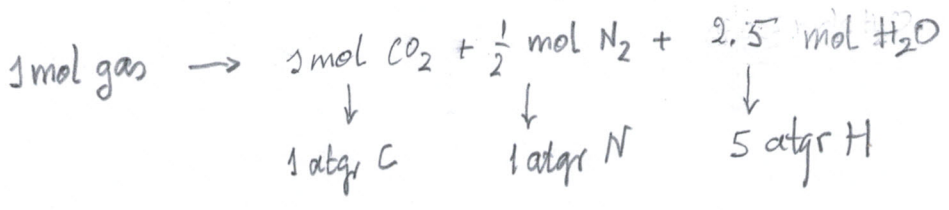 1 mol gas → 1 mol CO₂ + ½ mol N₂ + 2.5 mol H₂O
↓ ↓ ↓
1 atgr C 1 atgr N 5 atgr H